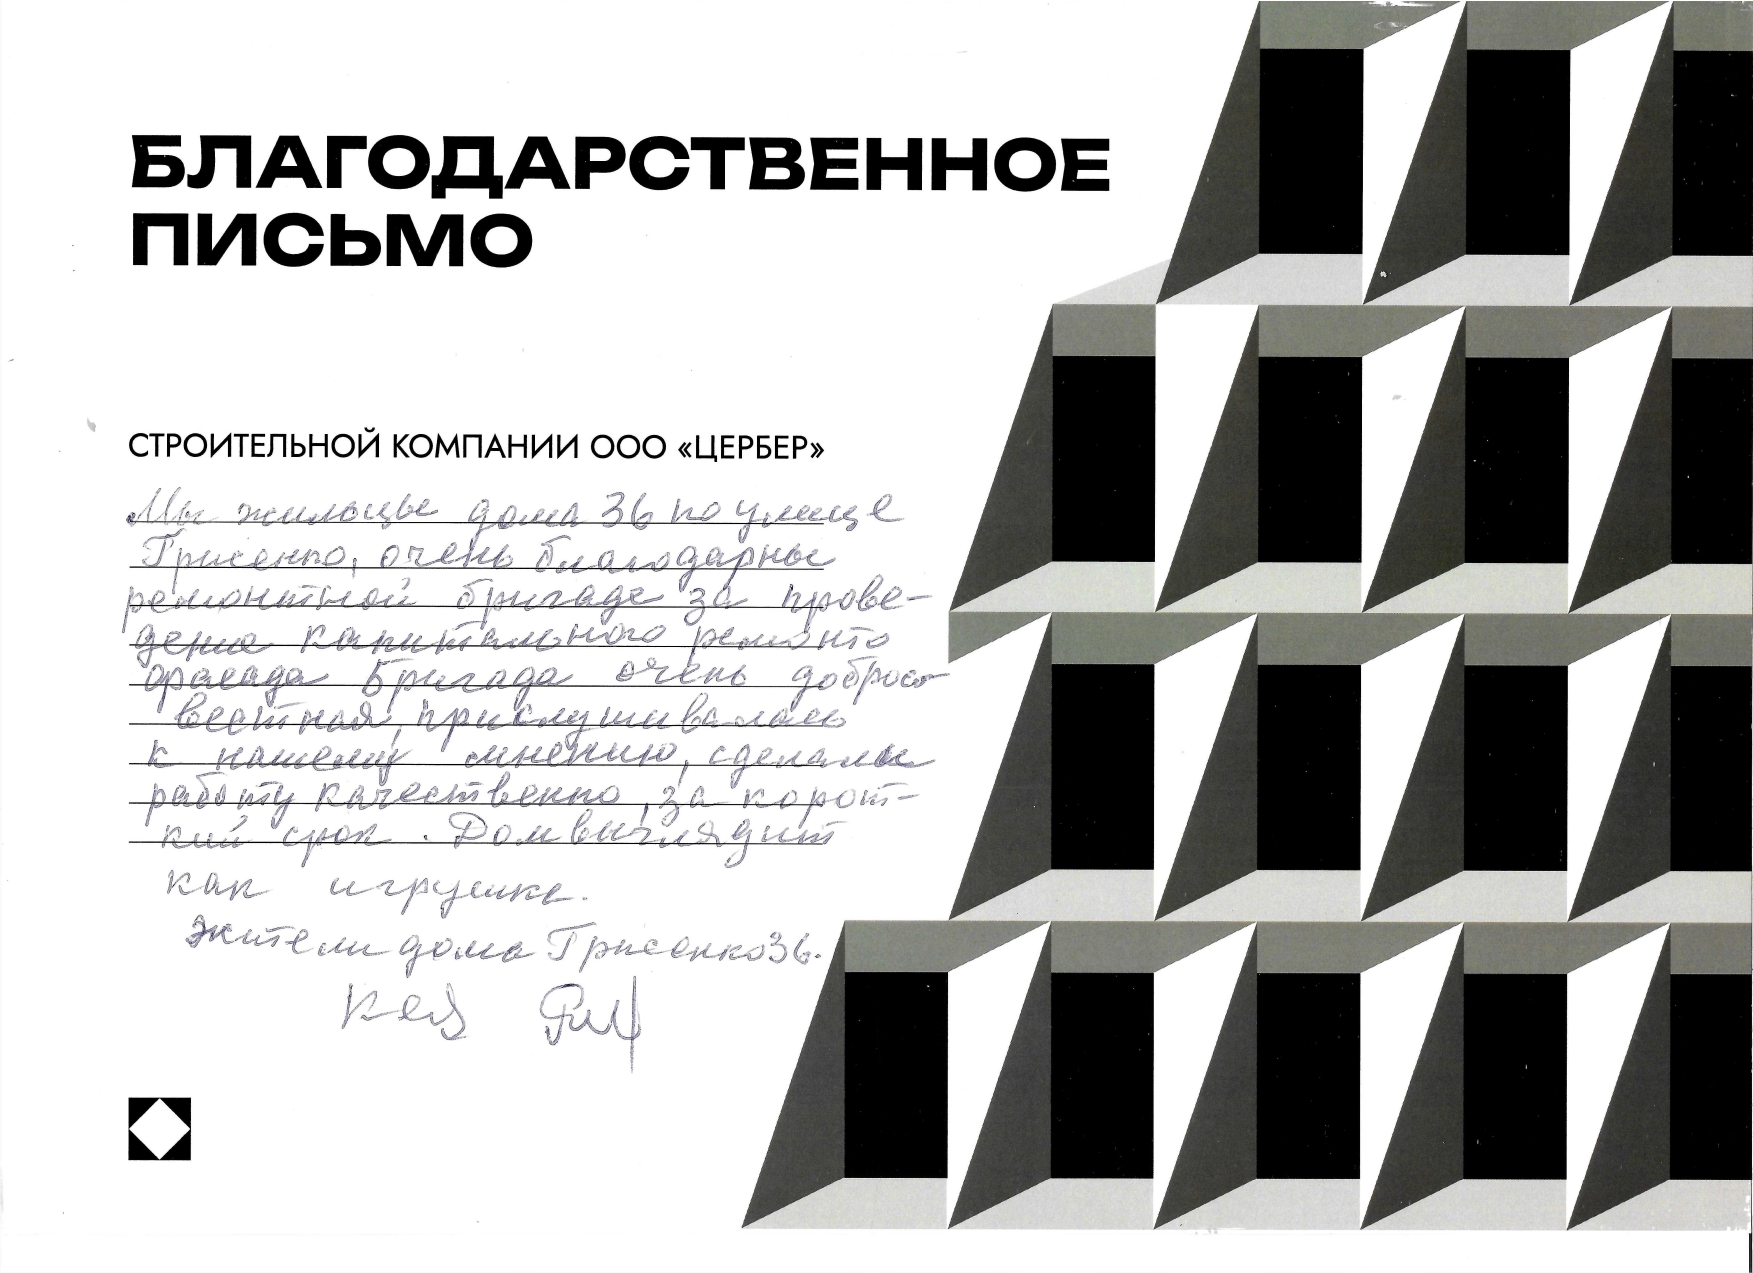 БЛАГОДАРСТВЕННОЕ
ПИСЬМО
СТРОИТЕЛЬНОЙ КОМПАНИИ ООО «ЦЕРБЕР»
Мы жильцы дома 36 по улице
Грисенко, очень благодарны
ремонтной бригаде за прове-
дение капитального ремонта
фасада Бригада очень добросо
вестная, прислушивалась
к нашему мнению, сделала
работу качественно, за корот-
кий срок. Дом выглядит
как игрушка.
Жители дома Грисенко 36.